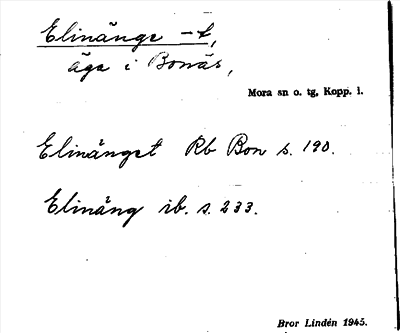 Elinänge -t,
äga i Bonäs,
Mora sn o. tg, Kopp. l.
Elinänget Rb Bon s. 190.
Elinäng ib. s. 233.
Bror Lindén 1945.